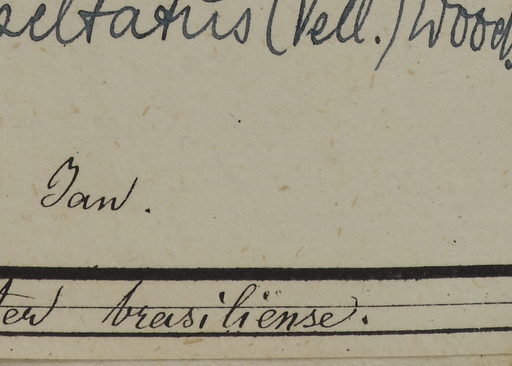 peltatus (Vell.) Wood.
Jan.
ter brasiliënse.